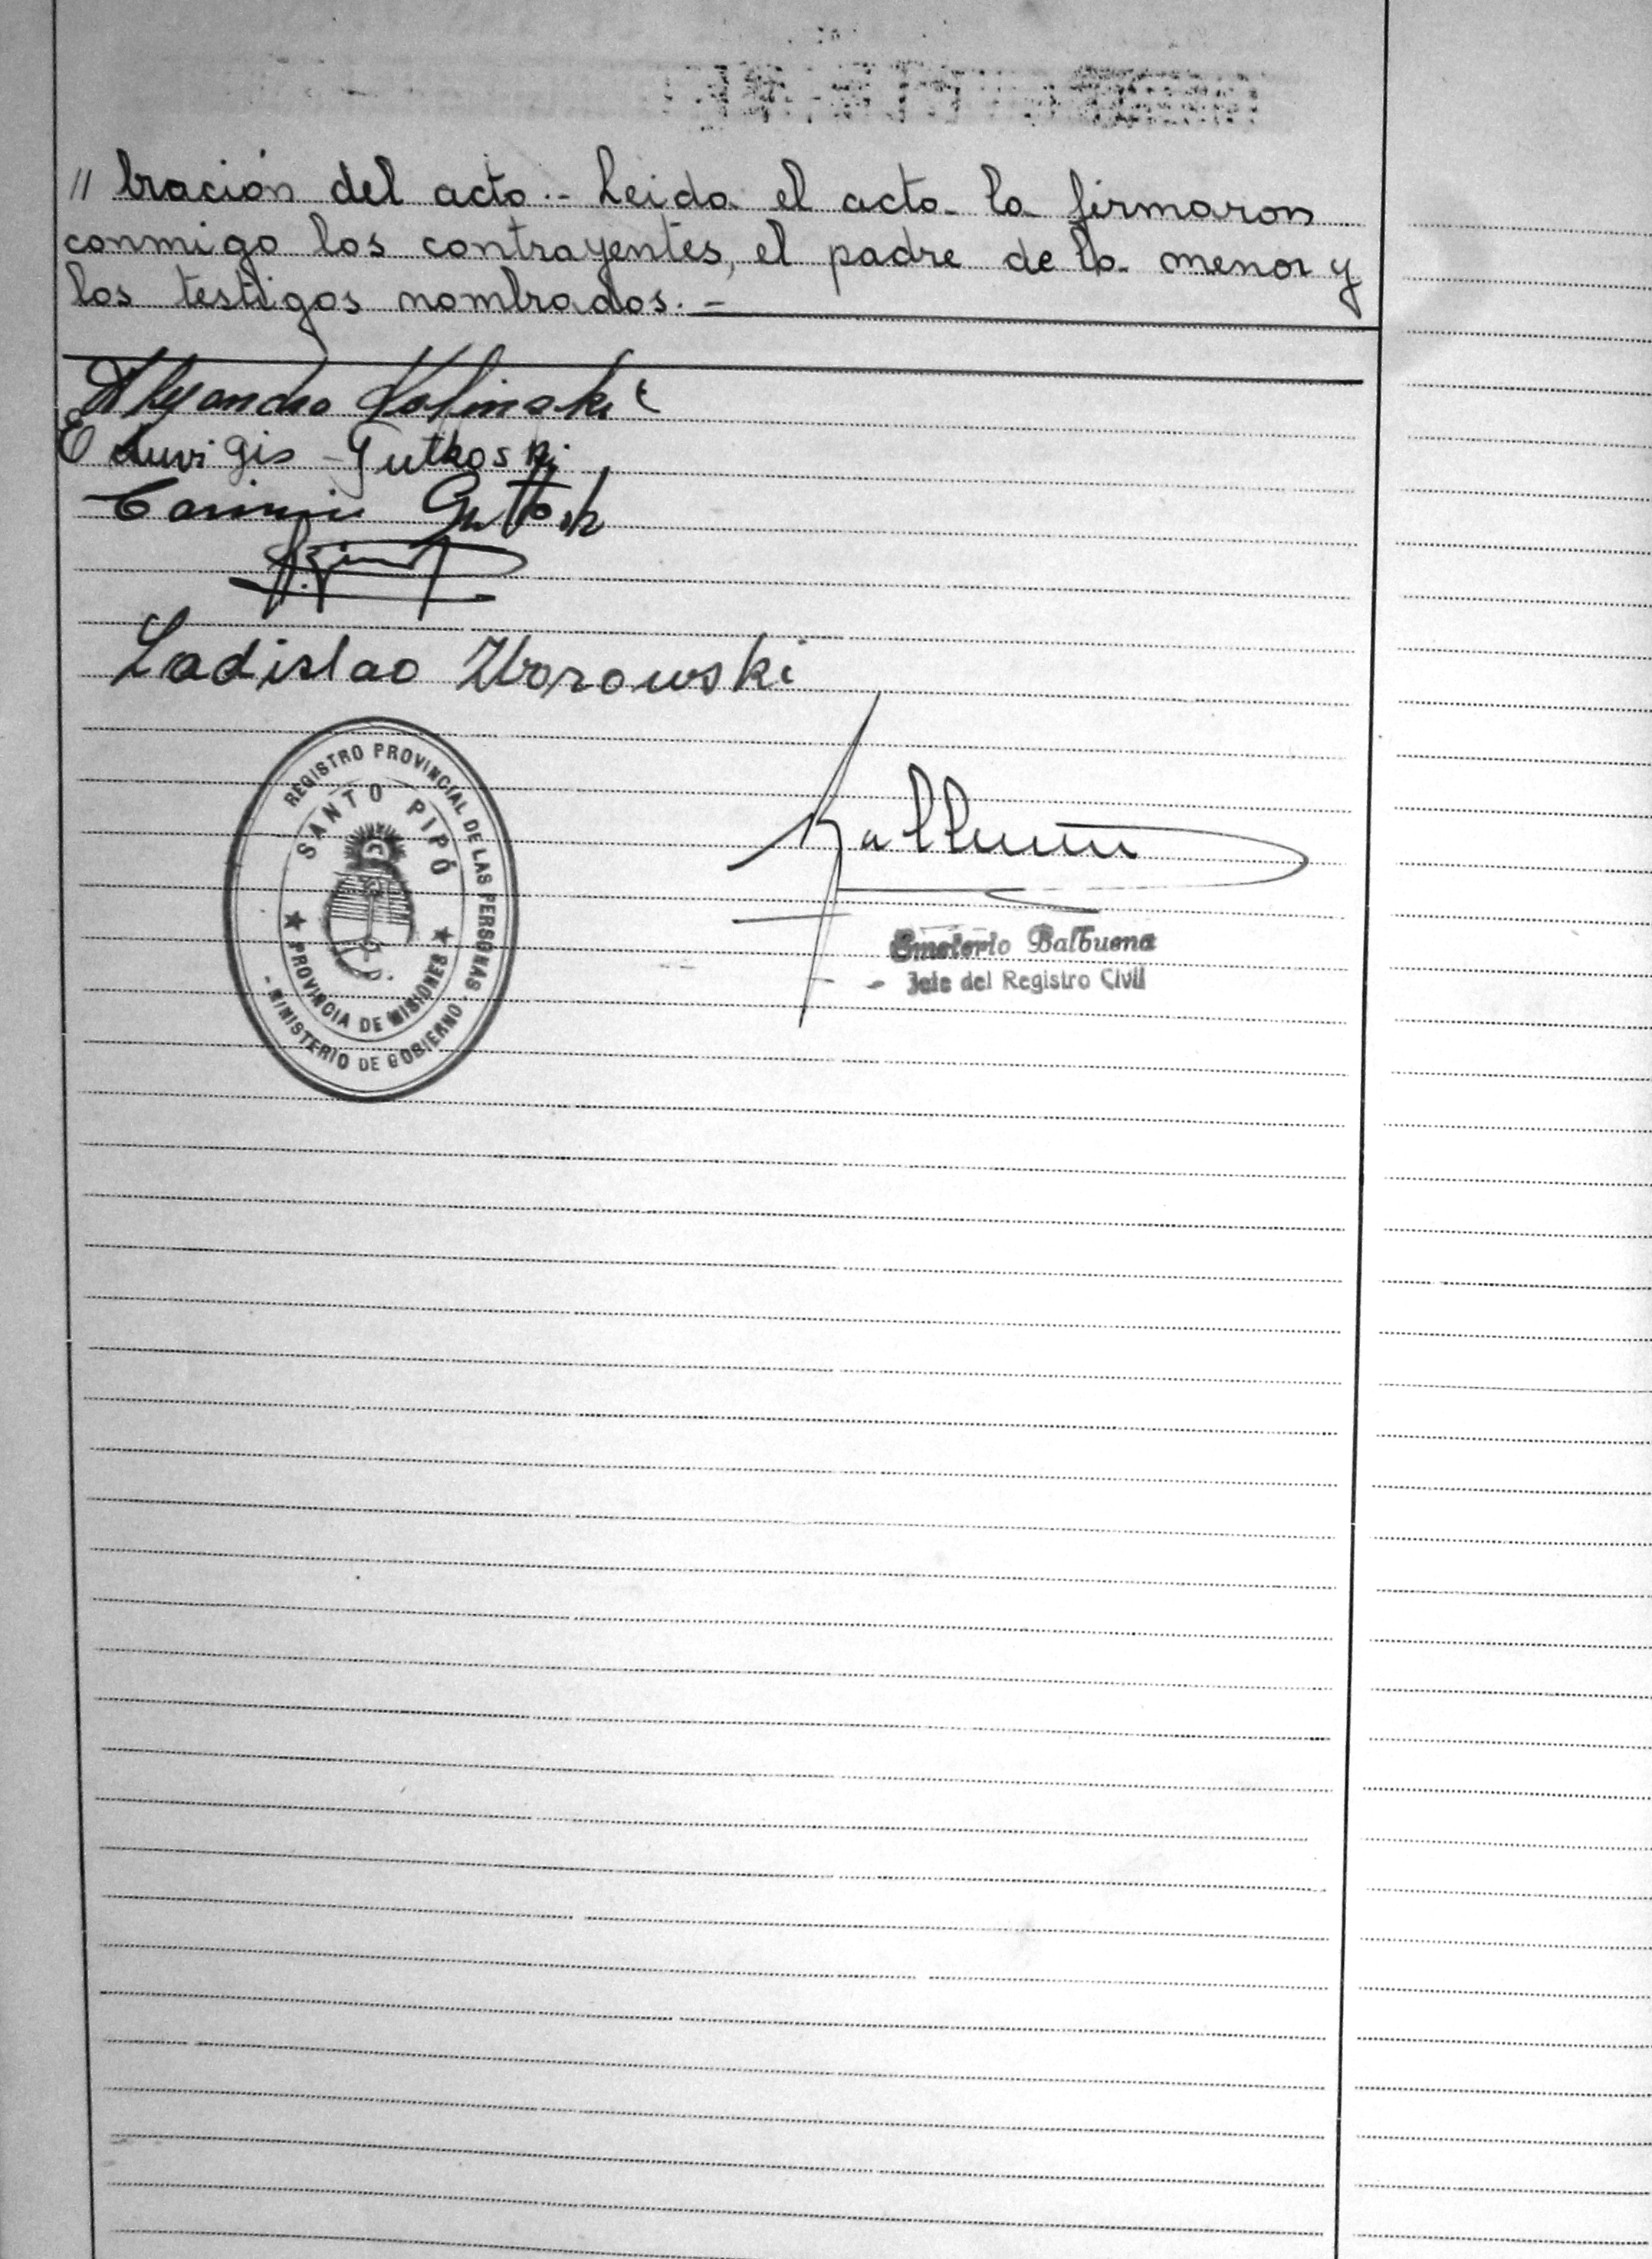 // bración del acto.- Leida el acta la firmaron
conmigo los contrayentes, el padre de la menor y
los testigos nombrados. -
Alejandro Kolinski
Eduvigis Gutkoski
Ladislao Worowski
REGISTRO PROVINCIAL DE LAS PERSONAS
SANTO PIPÓ
PROVINCIA DE MISIONES
- MINISTERIO DE GOBIERNO -
Emeterio Balbuena
- Jefe del Registro Civil